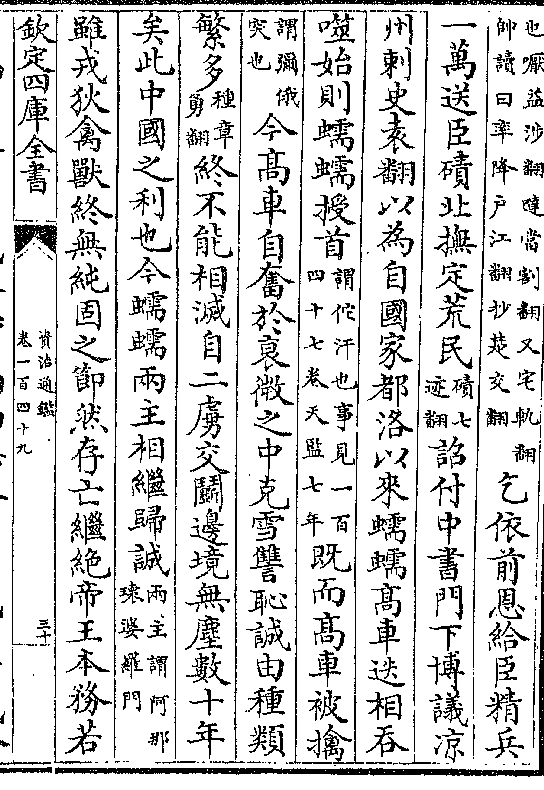 也厭益涉翻噠當割翻又宅軋翻帥讀曰率降戶江翻抄楚交翻乞依前恩給臣精兵
一萬送臣磧北撫定荒民磧七迹翻詔付中書門下博議涼
州刺史袁翻以為自國家都洛以來蠕蠕髙車迭相吞
噬始則蠕蠕授首謂佗汗也事見一百四十七卷天監七年既而髙車被擒
謂彌俄突也今髙車自奮於衰微之中克雪讐恥誠由種類
繁多種章勇翻終不能相滅自二虜交鬭邊境無塵數十年
矣此中國之利也今蠕蠕兩主相繼歸誠兩主謂阿那瓌婆羅門
雖戎狄禽獸終無純固之節然存亡繼絶帝王本務若
欽定四庫全書
資治通鑑
卷一百四十九
三十